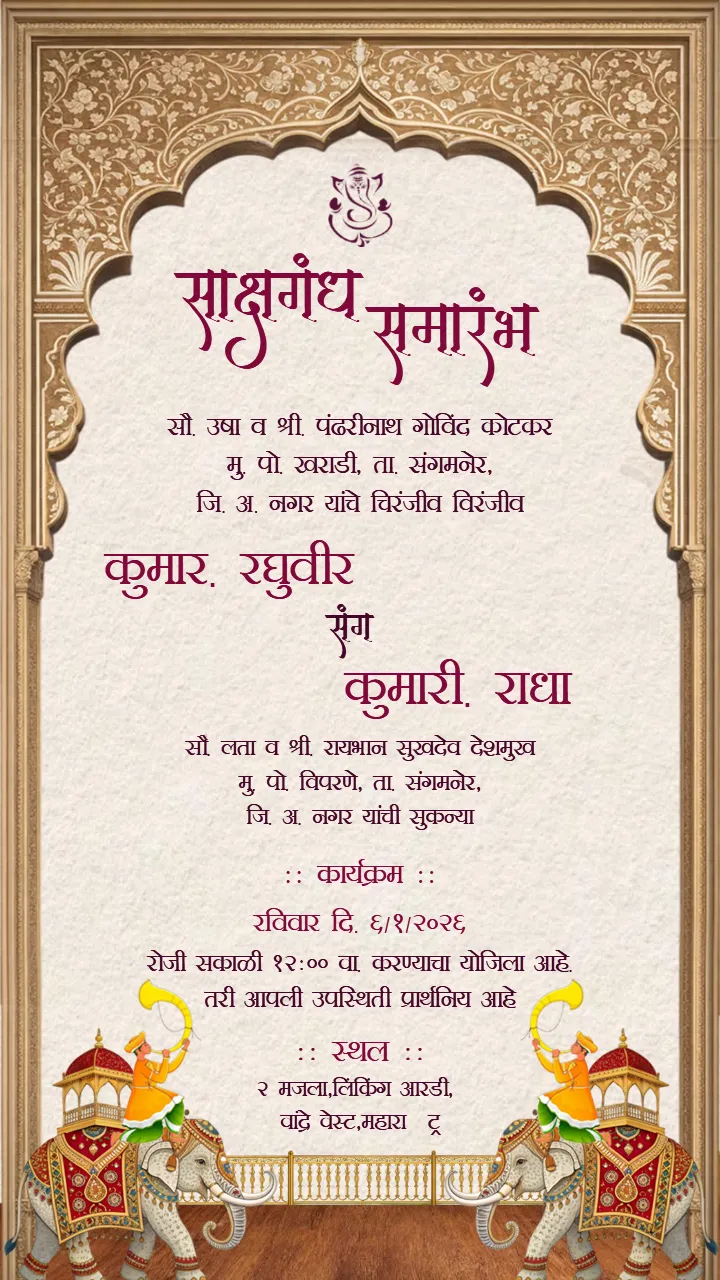 साक्षगंध
समारंभ
सौ. उषा व श्री. पंढरीनाथ गोविंद कोटकर
मु. पो. खराडी, ता. संगमनेर,
जि. अ. नगर यांचे चिरंजीव विरंजीव
कुमार. रघुवीर
संग
कुमारी. राधा
सौ. लता व श्री. रायभान सुखदेव देशमुख
मु. पो. विपरणे, ता. संगमनेर,
जि. अ. नगर यांची सुकन्या
:: कार्यक्रम ::
रविवार दि. ६/१/२०२६
रोजी सकाळी १२:०० वा. करण्याचा योजिला आहे.
तरी आपली उपस्थिती प्रार्थनिय आहे
:: स्थल ::
२ मजला,लिंकिंग आरडी,
वांद्रे वेस्ट,महारा ट्र